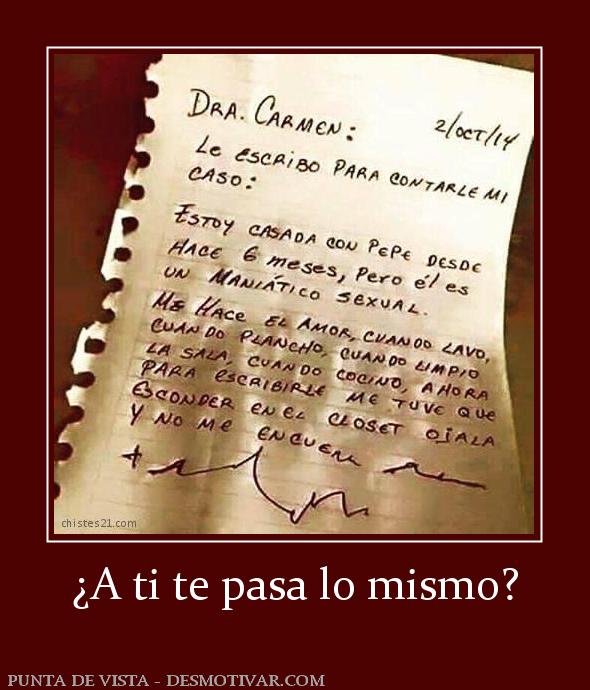 DRA. CARMEN:
2/OCT/14
LE ESCRIBO PARA CONTARLE MI
CASO:
ESTOY CASADA CON PEPE DESDE
HACE 6 MESES, PERO ÉL ES
UN MANIÁTICO SEXUAL.
ME HACE EL AMOR, CUANDO LAVO,
CUANDO PLANCHO, CUANDO LIMPIO
LA SALA, CUANDO COCINO, AHORA
PARA ESCRIBIRLE ME TUVE QUE
ESCONDER EN EL CLOSET OJALA
Y NO ME ENCUEN
chistes21.com
¿A ti te pasa lo mismo?
PUNTA DE VISTA - DESMOTIVAR.COM